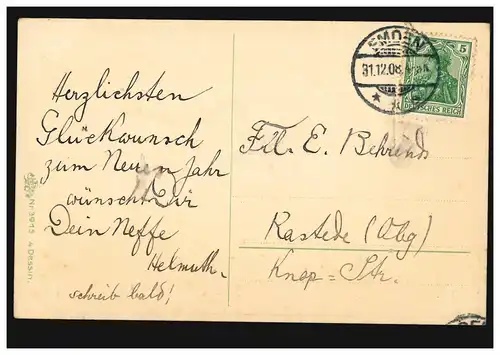 Herzlichsten
Glückwunsch
zum Neuen Jahr
wünscht Dir
Dein Neffe
Helmuth.
schreib bald!
EMDEN
31.12.08.
5
DEUTSCHES REICH
Frl. E. Behrends
Rastede (Obg)
Knop-Str.
Nr. 3915 4 Dessin.